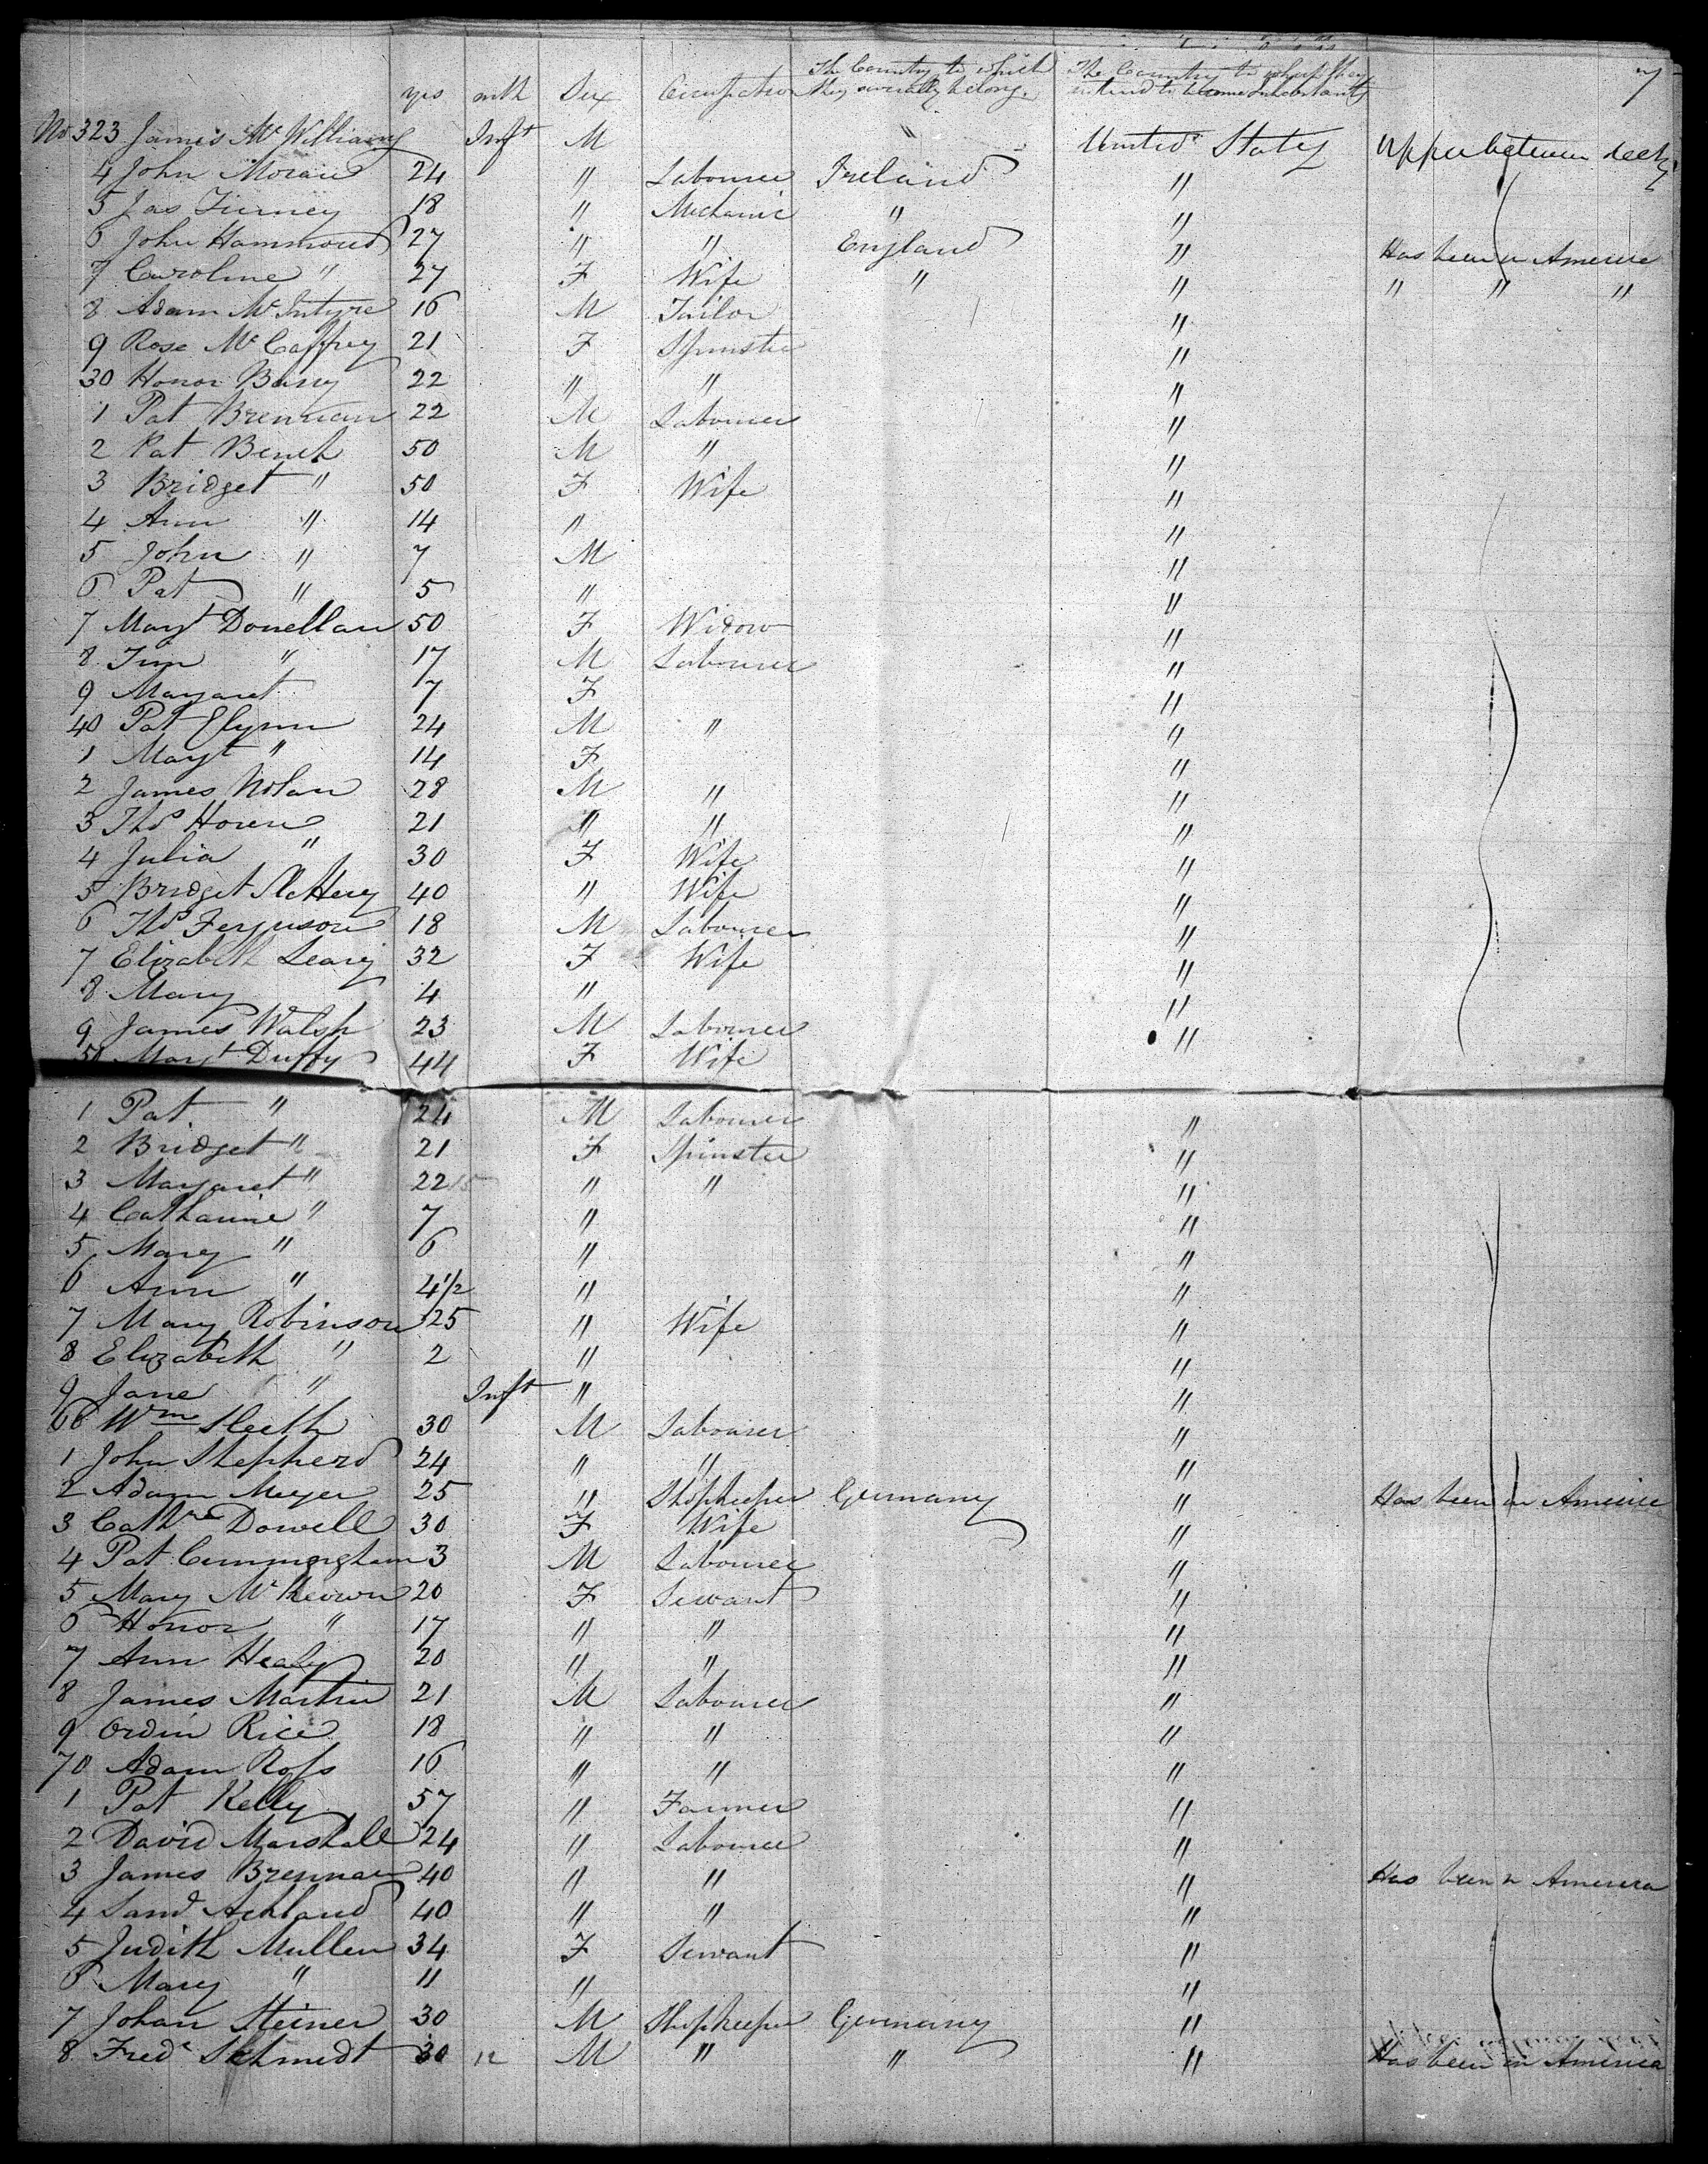 yrs mth Sex Occupation The Country to which they severally belong. The Country to which they intend to become inhabitants 7
No 323 James McWilliams Inft M " United States Upper between decks
4 John Moran 24 " Labourer Ireland "
5 Jas Tierney 18 " Mechanic " "
6 John Hammond 27 " " England " Has been in America
7 Caroline " 27 F Wife " " " " "
8 Adam McIntyre 16 M Tailor "
9 Rose McCaffrey 21 F Spinster "
30 Honor Barry 22 " " "
1 Pat Brennan 22 M Labourer "
2 Pat Bench 50 M " "
3 Bridget " 50 F Wife "
4 Ann " 14 " "
5 John " 7 M "
6 Pat " 5 " "
7 Margt Donellan 50 F Widow "
8 Tim " 17 M Labourer "
9 Margaret 7 F "
40 Pat Flynn 24 M " "
1 Margt " 14 F "
2 James Nolan 28 M " "
3 Thos Horen 21 " " "
4 Julia " 30 F Wife "
5 Bridget Slattery 40 " Wife "
6 Thos Ferguson 18 M Labourer "
7 Elizabeth Leary 32 F Wife "
8 Mary 4 " "
9 James Walsh 23 M Labourer "
50 Margt Duffy 44 F Wife
1 Pat " 24 M Labourer "
2 Bridget " 21 F Spinster "
3 Margaret " 22 15 " " "
4 Catharine " 7 " "
5 Mary " 6 " "
6 Ann " 4½ " "
7 Mary Robinson 25 " Wife "
8 Elizabeth " 2 " "
9 Jane " Inft " "
60 Wm Sleeth 30 M Labourer "
1 John Shepherd 24 " " "
2 Adam Meyer 25 " Shopkeeper Germany " Has been in America
3 Cathne Dowell 30 F Wife "
4 Pat Cunningham 3 M Labourer "
5 Mary McKeown 20 F Servant "
6 Honor " 17 " " "
7 Ann Healy 20 " " "
8 James Martin 21 M Labourer "
9 Ordin Rice 18 " " "
70 Adam Ross 16 " " "
1 Pat Kelly 57 " Farmer "
2 David Marshall 24 " Labourer "
3 James Brennan 40 " " " Has been in America
4 Saml Ackland 40 " " "
5 Judith Mullen 34 F Servant "
6 Mary " 11 " "
7 Johan Steiner 30 M Shopkeeper Germany "
8 Fredk Schmidt 30 12 M " " " Has been in America